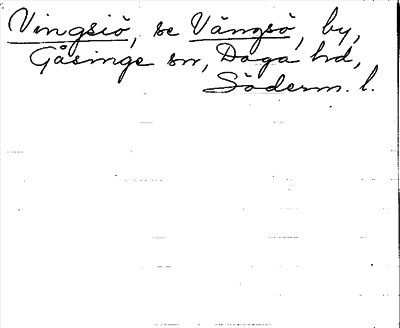 Vingsiö, se Vängsö, by,
Gåsinge sn, Daga hd,
Söderm. l.